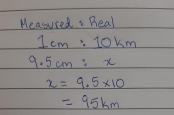 Measured : Real
1cm : 10km
9.5cm : x
x = 9.5x10
= 95km